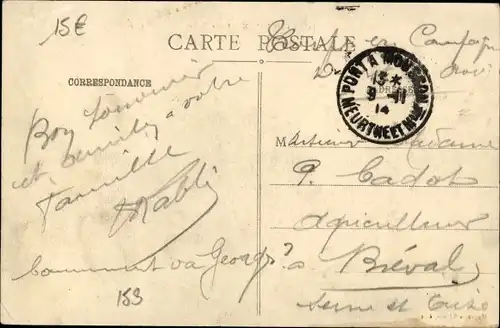 15€
en Campagne
CARTE POSTALE
PONT A MOUSSON
13*
9-11
14
MEURTHE ET MLLE
CORRESPONDANCE
Bon Souvenir
et amitiés à votre
famille
Monsieur Madame
P. Cadot
agriculteur
Comment va Georges?
à Bréval
Seine et Oise
153